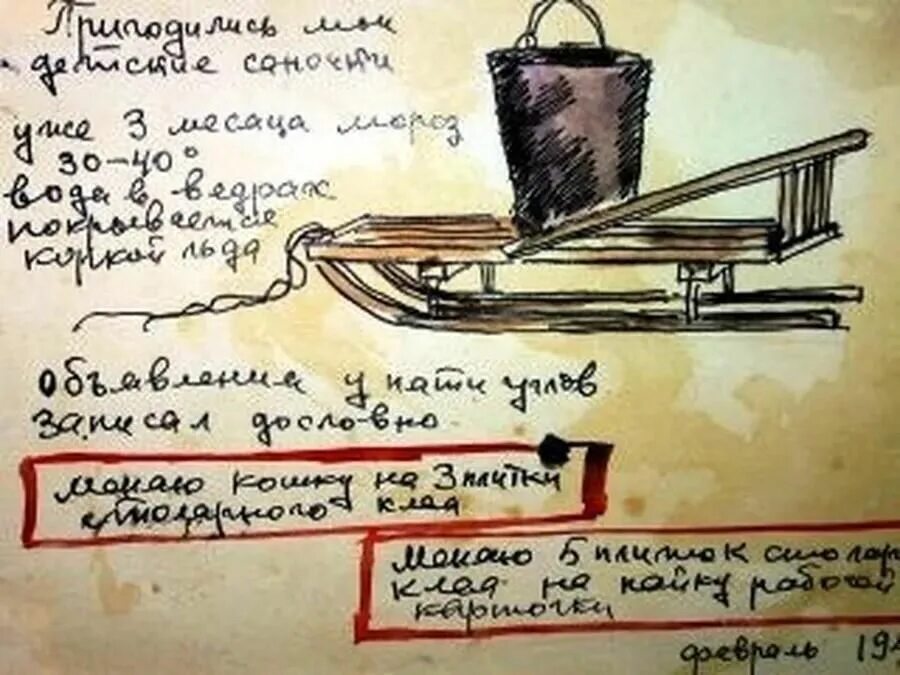 Пригодились мои
детские саночки
уже 3 месаца мороз
30-40°
вода в ведрах
покрывается
коркой льда
Объявления у пяти углов
записал дословно.
меняю кошку на 3 плитки
столярного клея
Меняю 5 плиток столяр
клея на пайку рабочей
карточки
февраль 19